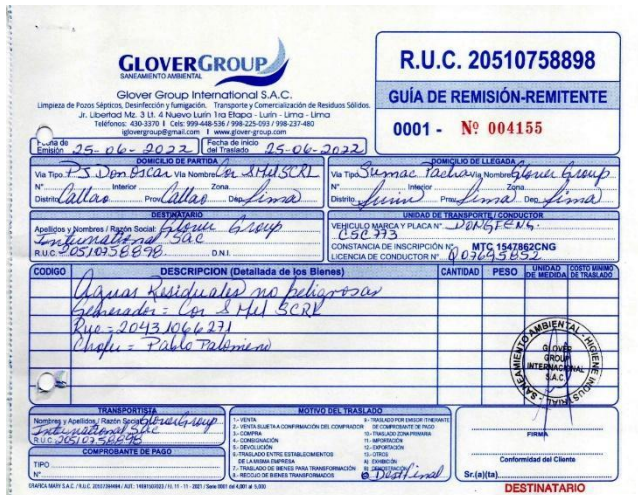 GLOVERGROUP
SANEAMIENTO AMBIENTAL
Glover Group International S.A.C.
Limpieza de Pozos Sépticos, Desinfección y fumigación. Transporte y Comercialización de Residuos Sólidos.
Jr. Libertad Mz. 3 Lt. 4 Nuevo Lurín 1ra Etapa - Lurín - Lima - Lima
Teléfonos: 430-3370 I Cels: 999-448-536 / 998-225-093 / 998-237-480
iglovergroup@gmail.com I www.glover-group.com
R.U.C. 20510758898
GUÍA DE REMISIÓN-REMITENTE
0001 - Nº 004155
Fecha de Emisión 25-06-2022 Fecha de inicio del Traslado 25-06-2022
DOMICILIO DE PARTIDA
Via Tipo PJ Don Oscar Via Nombre Cor S Mel SCRL
N° Interior Zona
Distrito Callao Prov. Callao Dep. Lima
DOMICILIO DE LLEGADA
Via Tipo Sumac Pacha Via Nombre Glover Group
N° Interior Zona
Distrito Lurin Prov. Lima Dep. Lima
DESTINATARIO
Apellidos y Nombres / Razón Social: Glover Group
International Sac
R.U.C. 20510758898 D.N.I.
UNIDAD DE TRANSPORTE/CONDUCTOR
VEHICULO MARCA Y PLACA N° DONGFENG.
C5C773
CONSTANCIA DE INSCRIPCIÓN N° MTC 1547862CNG
LICENCIA DE CONDUCTOR N° Q07695852
CODIGO DESCRIPCION (Detallada de los Bienes) CANTIDAD PESO UNIDAD DE MEDIDA COSTO MINIMO DE TRASLADO
Aguas Residuales no peligrosas
Generador = Cor S Mel SCRL
Ruc = 20431066271
Chofer = Pablo Palomino
SANEAMIENTO AMBIENTAL - HIGIENE INDUSTRIAL
GLOVER
GROUP
INTERNACIONAL
S.A.C.
TRANSPORTISTA
Nombres y Apellidos / Razón Social Glover Group
International Sac
R.U.C. 20510758898
COMPROBANTE DE PAGO
TIPO
N°
MOTIVO DEL TRASLADO
1.- VENTA
2.- VENTA SUJETA A CONFIRMACIÓN DEL COMPRADOR
3.- COMPRA
4.- CONSIGNACIÓN
5.- DEVOLUCIÓN
6.- TRASLADO ENTRE ESTABLECIMIENTOS
DE LA MISMA EMPRESA
7.- TRASLADO DE BIENES PARA TRANSFORMACIÓN
8.- RECOJO DE BIENES TRANSFORMADOS
9.- TRASLADO POR EMISOR ITINERANTE
DE COMPROBANTE DE PAGO
10.- TRASLADO ZONA PRIMARIA
11.- IMPORTACIÓN
12.- EXPORTACIÓN
13.- OTROS
A) EXHIBICIÓN
B) DEMOSTRACIÓN
Dest Final
FIRMA
Conformidad del Cliente
Sr.(a)(ta)
GRAFICA MARY S.A.C.
DESTINATARIO